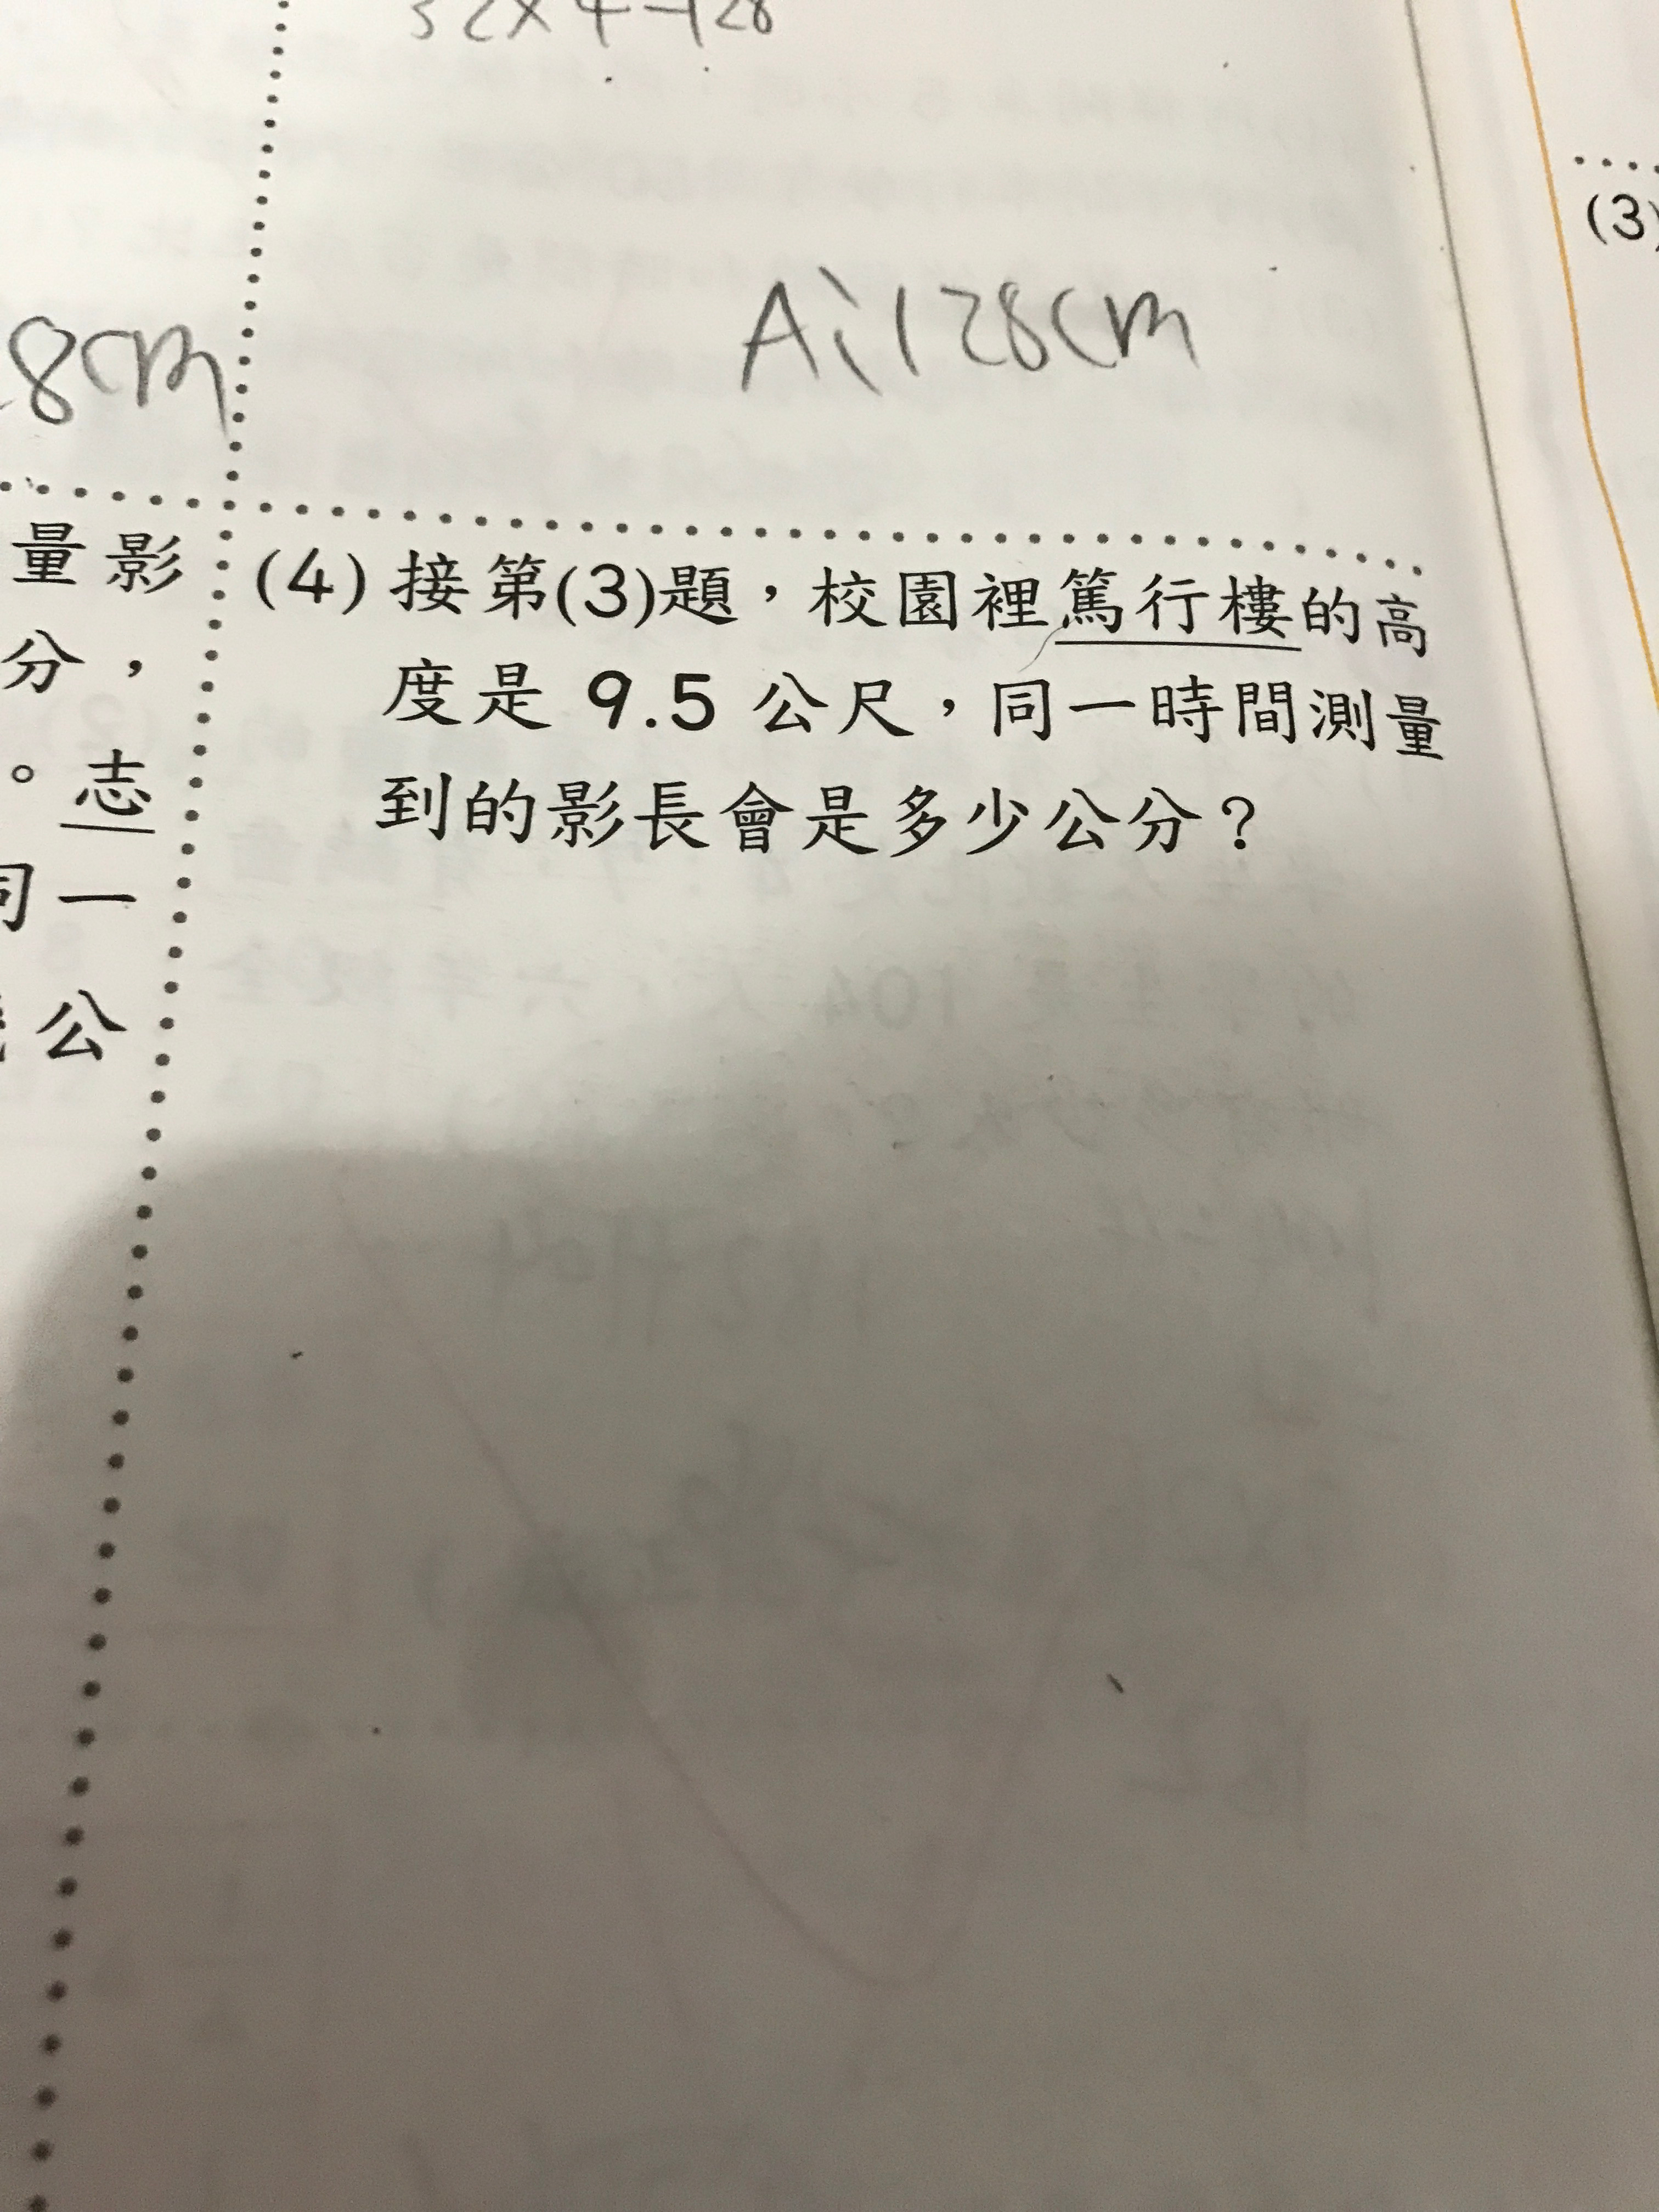 32×4=128
8cm
A:128cm
量影
分，
。志
同一
公
(4) 接第(3)題，校園裡篤行樓的高
度是 9.5 公尺，同一時間測量
到的影長會是多少公分？
(3)